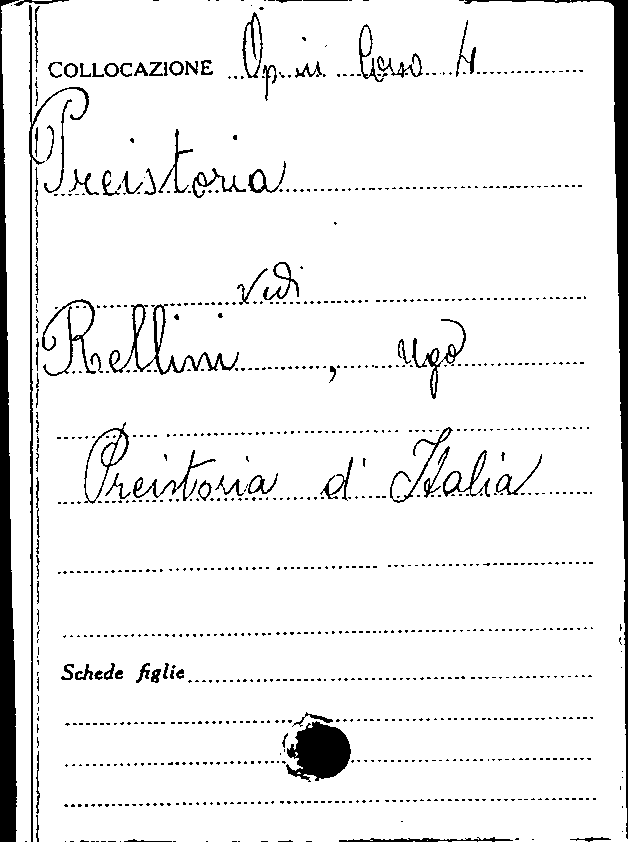 COLLOCAZIONE Op. in Corso 4
Preistoria
vedi
Rellini, Ugo
Preistoria d'Italia
Schede figlie